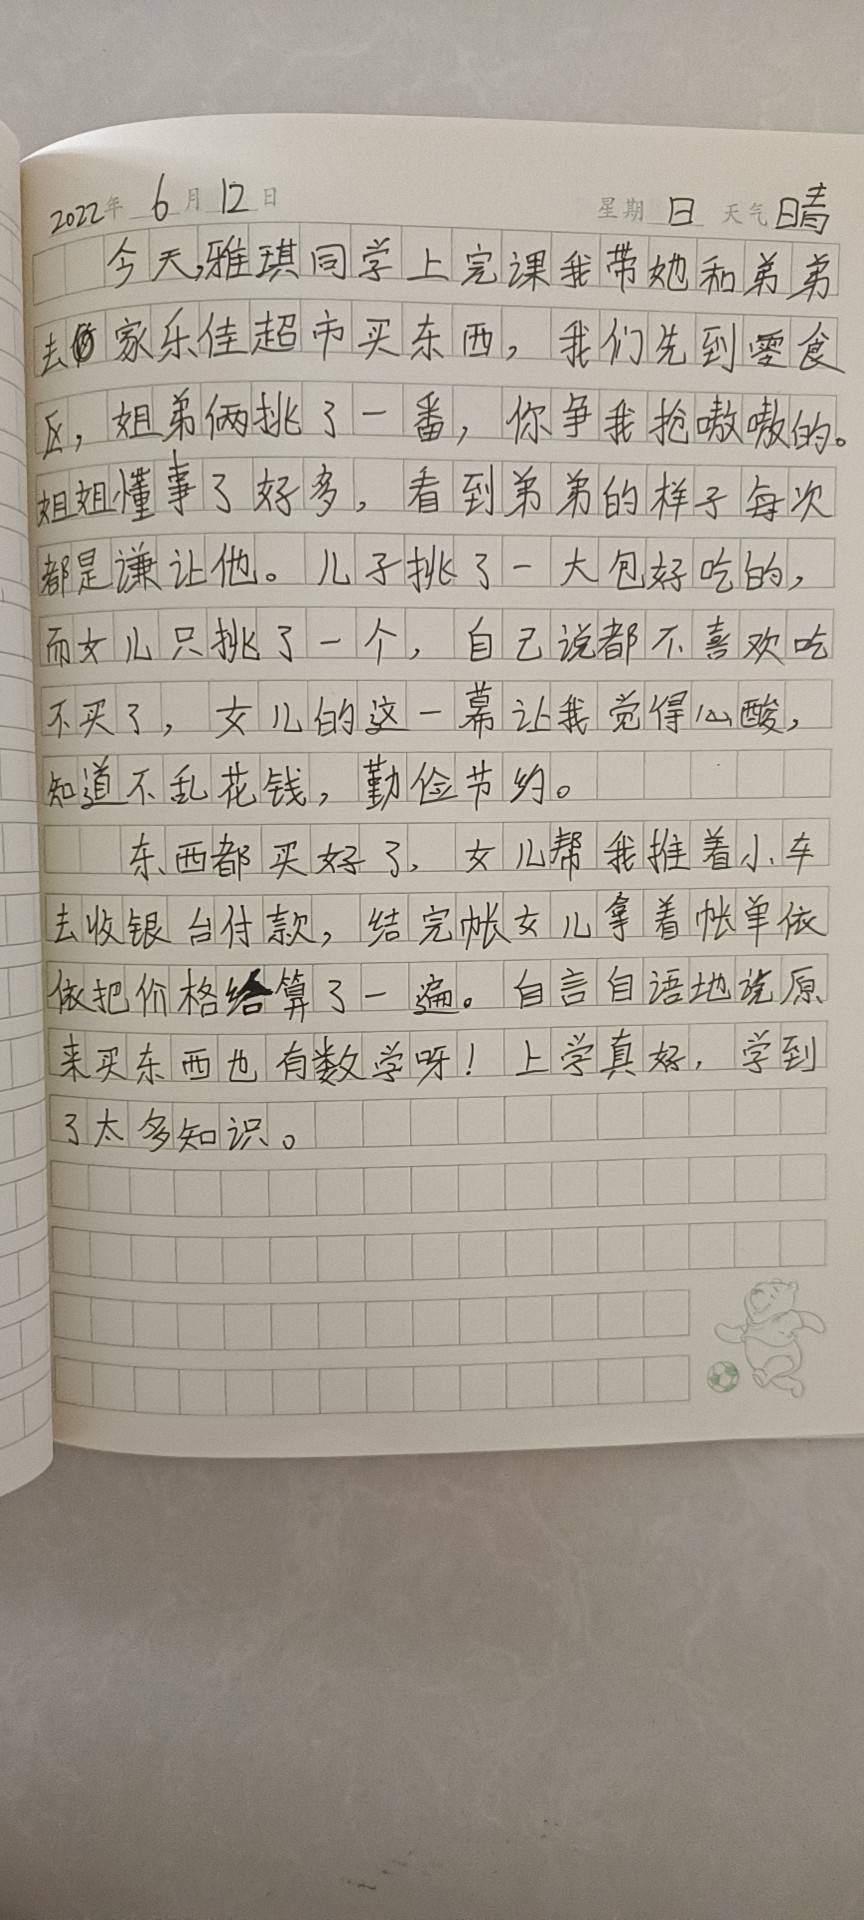 2022年 6月12日 星期日 天气晴
今天,雅琪同学上完课我带她和弟弟
去家乐佳超市买东西，我们先到零食
区，姐弟俩挑了一番，你争我抢嗷嗷的。
姐姐懂事了好多，看到弟弟的样子每次
都是谦让他。儿子挑了一大包好吃的，
而女儿只挑了一个，自己说都不喜欢吃
不买了，女儿的这一幕让我觉得心酸，
知道不乱花钱，勤俭节约。
东西都买好了，女儿帮我推着小车
去收银台付款，结完帐女儿拿着帐单依
依把价格给算了一遍。自言自语地说原
来买东西也有数学呀！上学真好，学到
了太多知识。